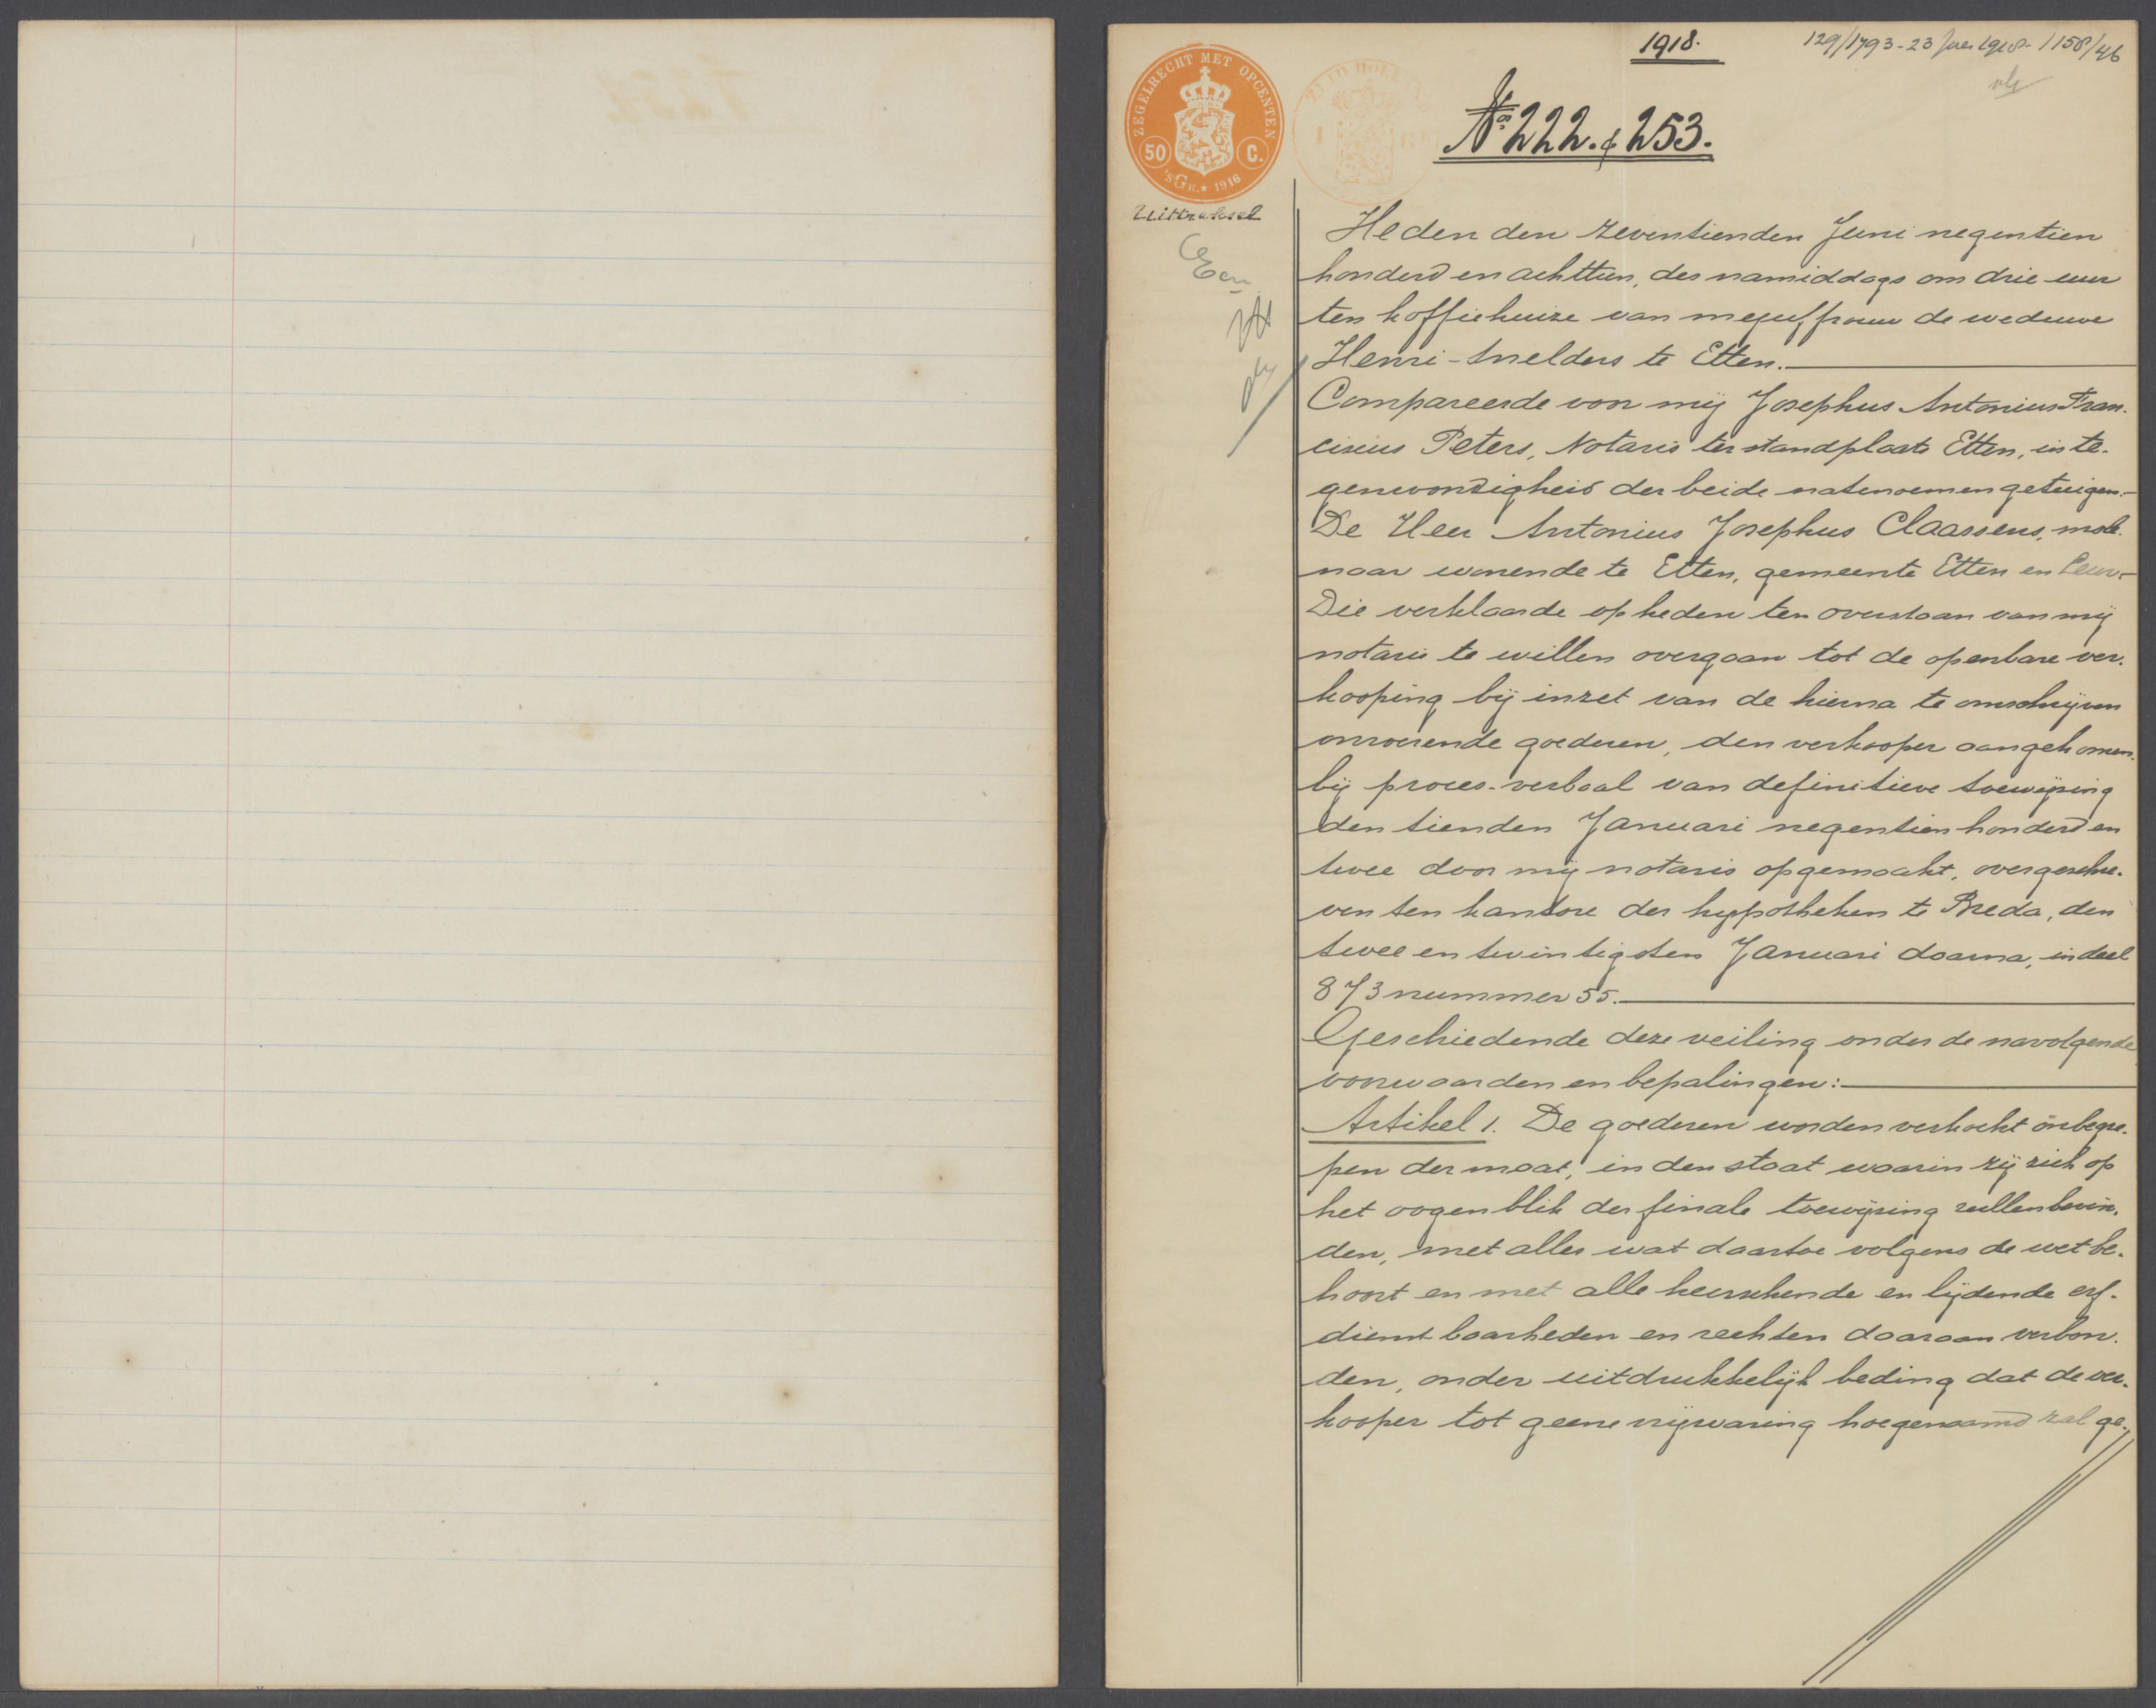 1918.
129/1793-23 Juni 1918-1158/46
No 222. & 253.
ZEGELRECHT MET OPCENTEN
50 C.
'sGR. * 1916
ZUID HOLL
Uittreksel
Een
Heden den zeventienden Juni negentien
honderd en achttien, des namiddags om drie uur
ten koffiehuize van mejuffrouw de weduwe
Henri-Snelders te Etten.
Compareerde voor mij Josephus Antonius Fran-
ciscus Peters, Notaris ter standplaats Etten, in te-
genwoordigheid der beide natenoemen getuigen.-
De Heer Antonius Josephus Claassens, mole-
naar wonende te Etten, gemeente Etten en Leur.-
Die verklaarde op heden ten overstaan van mij
notaris te willen overgaan tot de openbare ver-
kooping bij inzet van de hierna te omschrijven
onroerende goederen, den verkooper aangekomen
bij proces-verbaal van definitieve toewijzing
den tienden Januari negentien honderd en
twee door mij notaris opgemaakt, overgeschre-
ven ten kantore der hypotheken te Breda, den
twee en twintigsten Januari daarna, in deel
873 nummer 55.
Geschiedende deze veiling onder de navolgende
voorwaarden en bepalingen:
Artikel 1. De goederen worden verkocht onbegre-
pen der maat, in den staat waarin zij zich op
het oogenblik der finale toewijzing zullen bevin-
den, met alles wat daartoe volgens de wet be-
hoort en met alle heerschende en lijdende erf-
dienstbaarheden en rechten daaraan verbon-
den, onder uitdrukkelijk beding dat de ver-
kooper tot geene vrijwaring hoegenaamd zal ge-